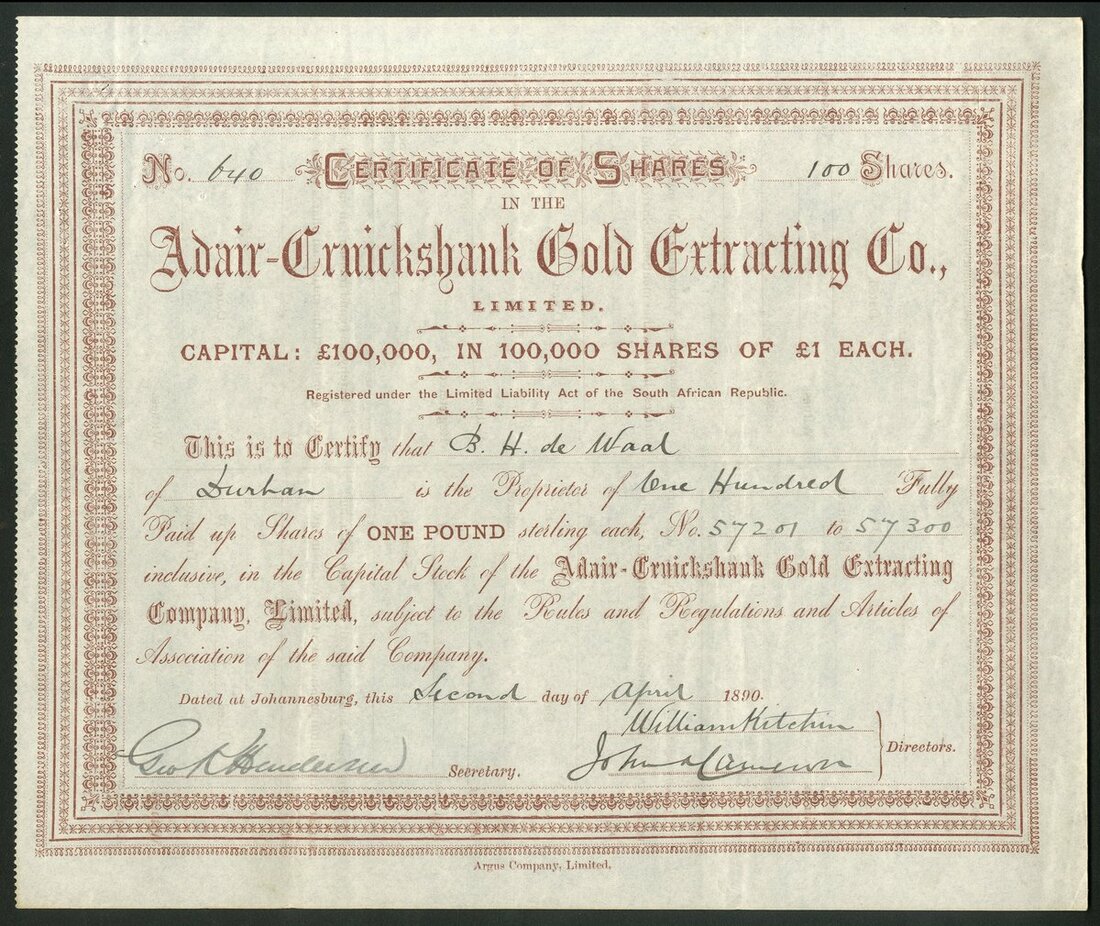 No. 640 CERTIFICATE OF SHARES 100 Shares.
IN THE
Adair-Cruickshank Gold Extracting Co.,
LIMITED.
CAPITAL: £100,000, IN 100,000 SHARES OF £1 EACH.
Registered under the Limited Liability Act of the South African Republic.
This is to Certify that B. H. de Waal
of Durban is the Proprietor of One Hundred Fully
Paid up Shares of ONE POUND sterling each, No. 57201 to 57300
inclusive, in the Capital Stock of the Adair-Cruickshank Gold Extracting
Company, Limited, subject to the Rules and Regulations and Articles of
Association of the said Company.
Dated at Johannesburg, this Second day of April 1890.
William Kitchin
Geo R Henderson Secretary. John A Cameron Directors.
Argus Company, Limited.